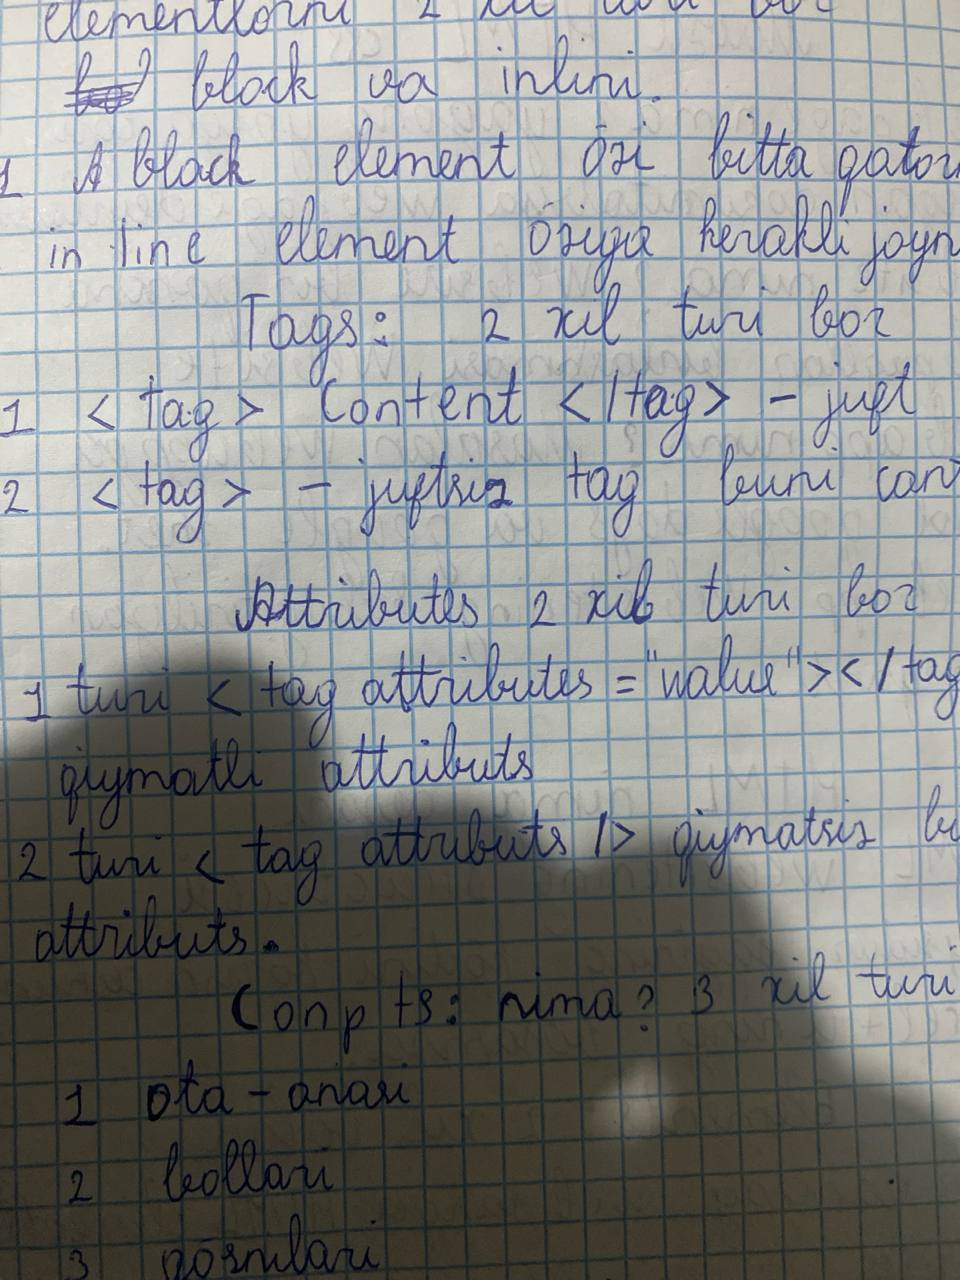 elementlorni 2 xil turi bor
block va inlini.
1 A block element özi bitta qator
in line element öziga kerakli joyn
Tags: 2 xil turi bor
1 <tag> Content </tag> - juft
2 <tag> - juftsiz tag buni con
Attributes 2 xil turi bor
1 turi <tag attributes = "value"></tag
qiymatli attributs
2 turi <tag attributs /> qiymatsiz bu
attributs.
Conp ts: nima? 3 xil turi
1 ota-onasi
2 bollari
3 qösnilari